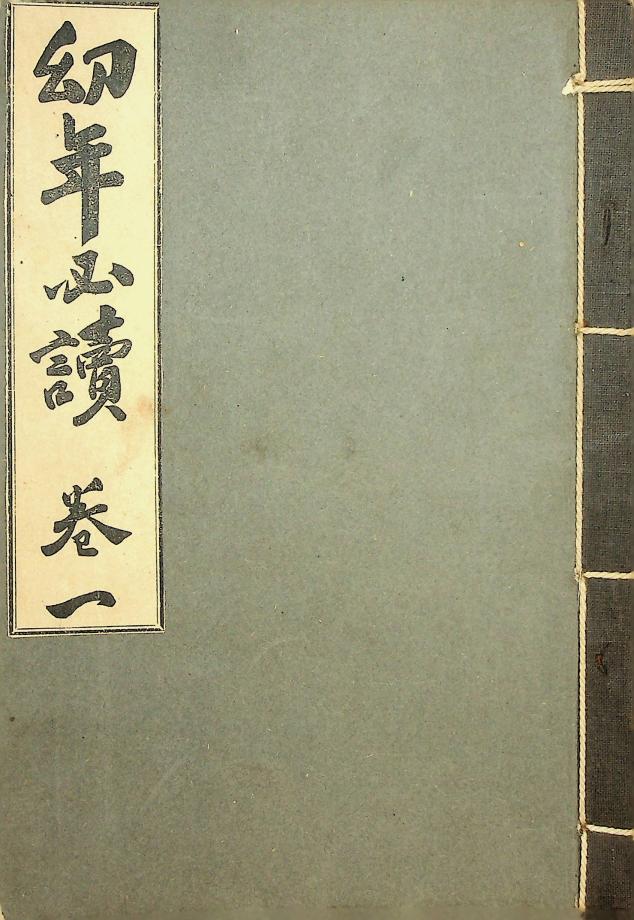 幼年必讀 卷一